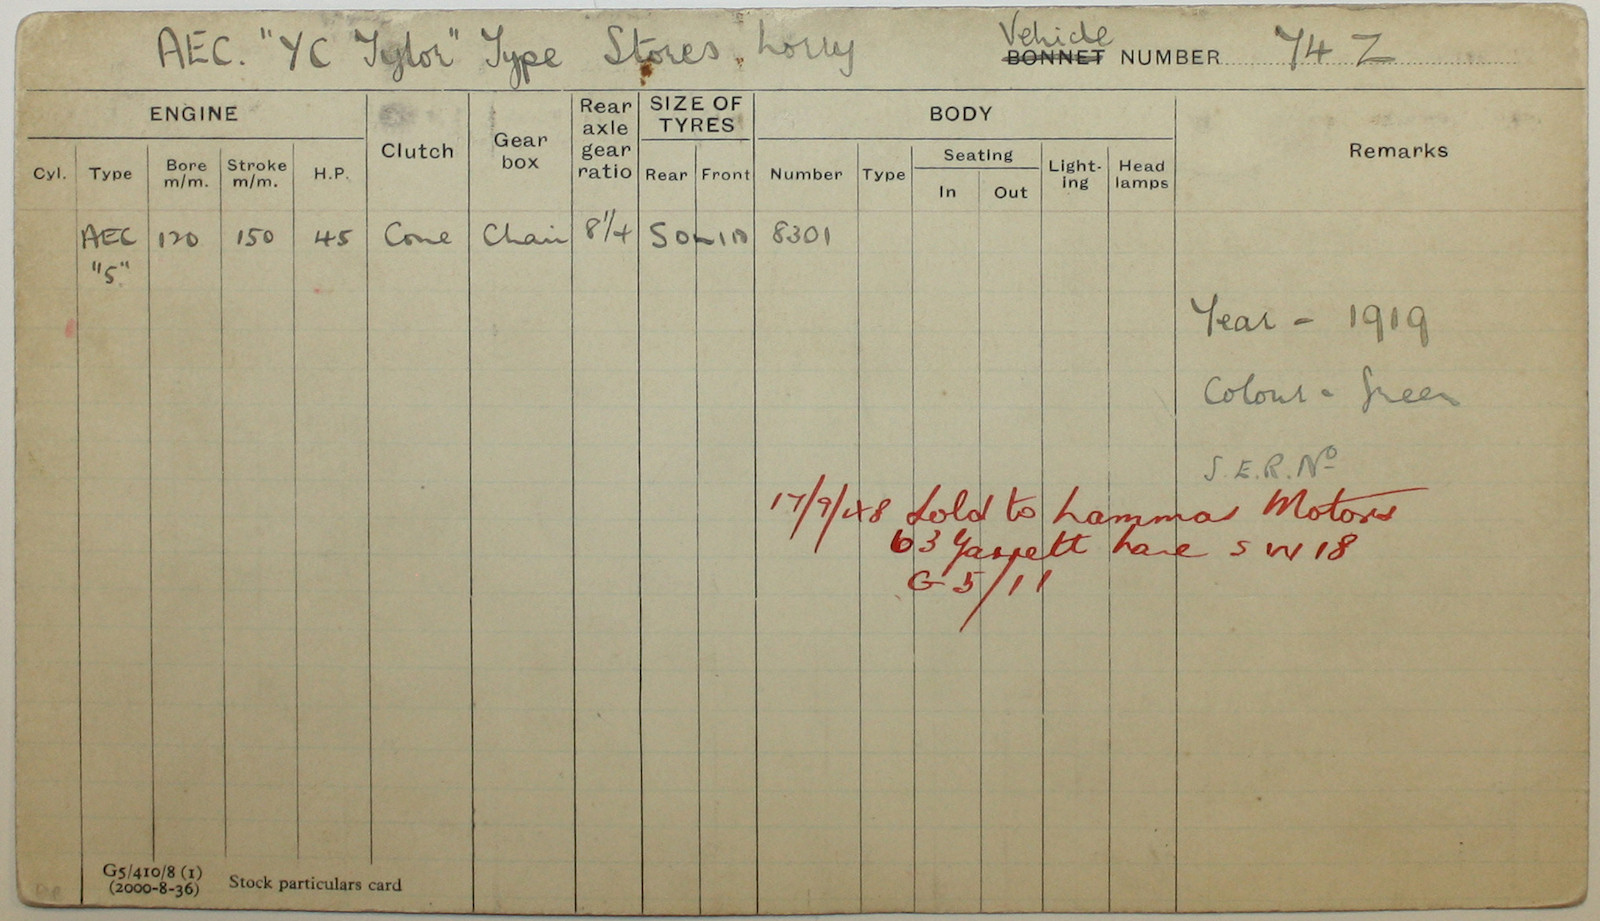 AEC. "YC Tylor" Type Stores Lorry Vehicle BONNET NUMBER 74 Z
ENGINE Clutch Gear box Rear axle gear ratio SIZE OF TYRES BODY Remarks
Cyl. Type Bore m/m. Stroke m/m. H.P. Rear Front Number Type Seating In Out Light-ing Head lamps
AEC 120 150 45 Cone Chain 8¼ SOLID 8301
"5"
Year - 1919
Colour - Green
S.E.R. Nº
17/9/48 Sold to Lammas Motors
63 Garrett Lane SW18
G5/11
G5/410/8 (1)
(2000-8-36) Stock particulars card